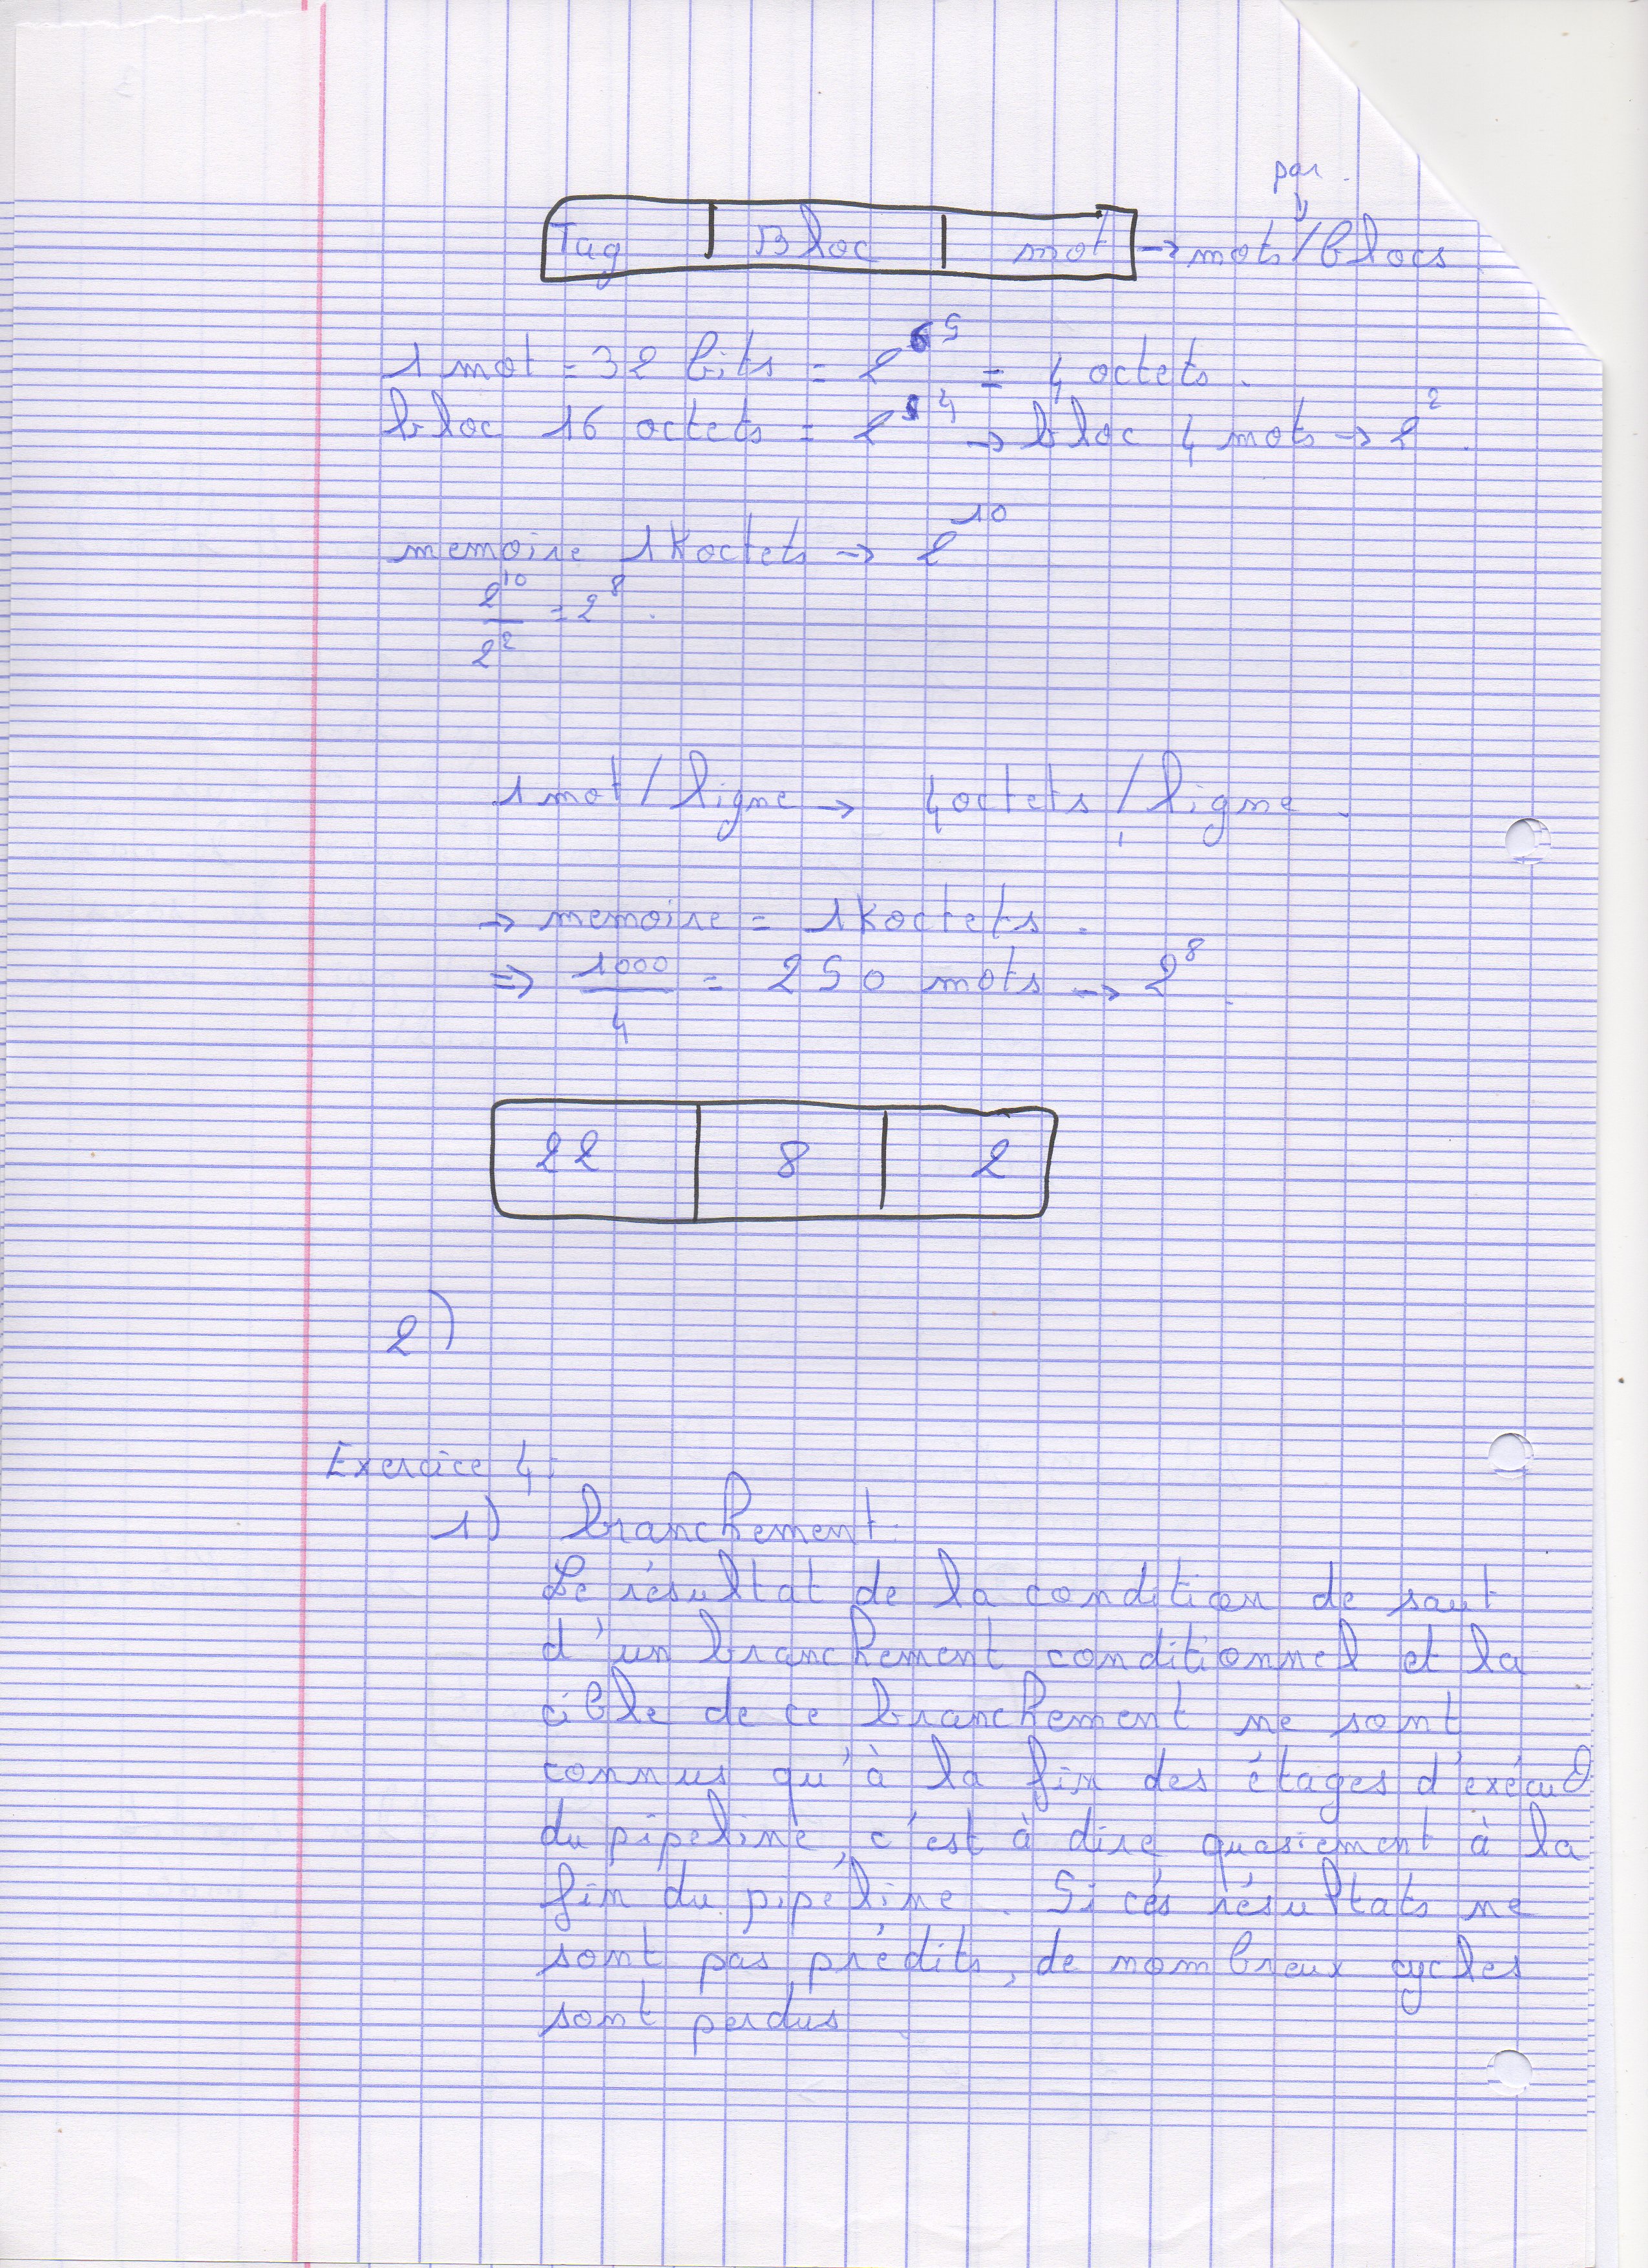 par
Tag | Bloc | mot → mots/blocs
1 mot = 32 bits = 2^5 = 4 octets.
bloc 16 octets = 2^4 → bloc 4 mots → 2^2.
memoire 1Koctets → 2^10
2^10 / 2^2 = 2^8.
1 mot / ligne → 4 octets / ligne.
→ memoire = 1Koctets.
⇒ 1000 / 4 = 250 mots → 2^8.
22 | 8 | 2
2)
Exercice 4:
1) branchement.
Le résultat de la condition de saut
d'un branchement conditionnel et la
cible de ce branchement ne sont
connus qu'à la fin des étages d'exécu
du pipeline, c'est à dire quasiment à la
fin du pipeline. Si ces résultats ne
sont pas prédits, de nombreux cycles
sont perdus